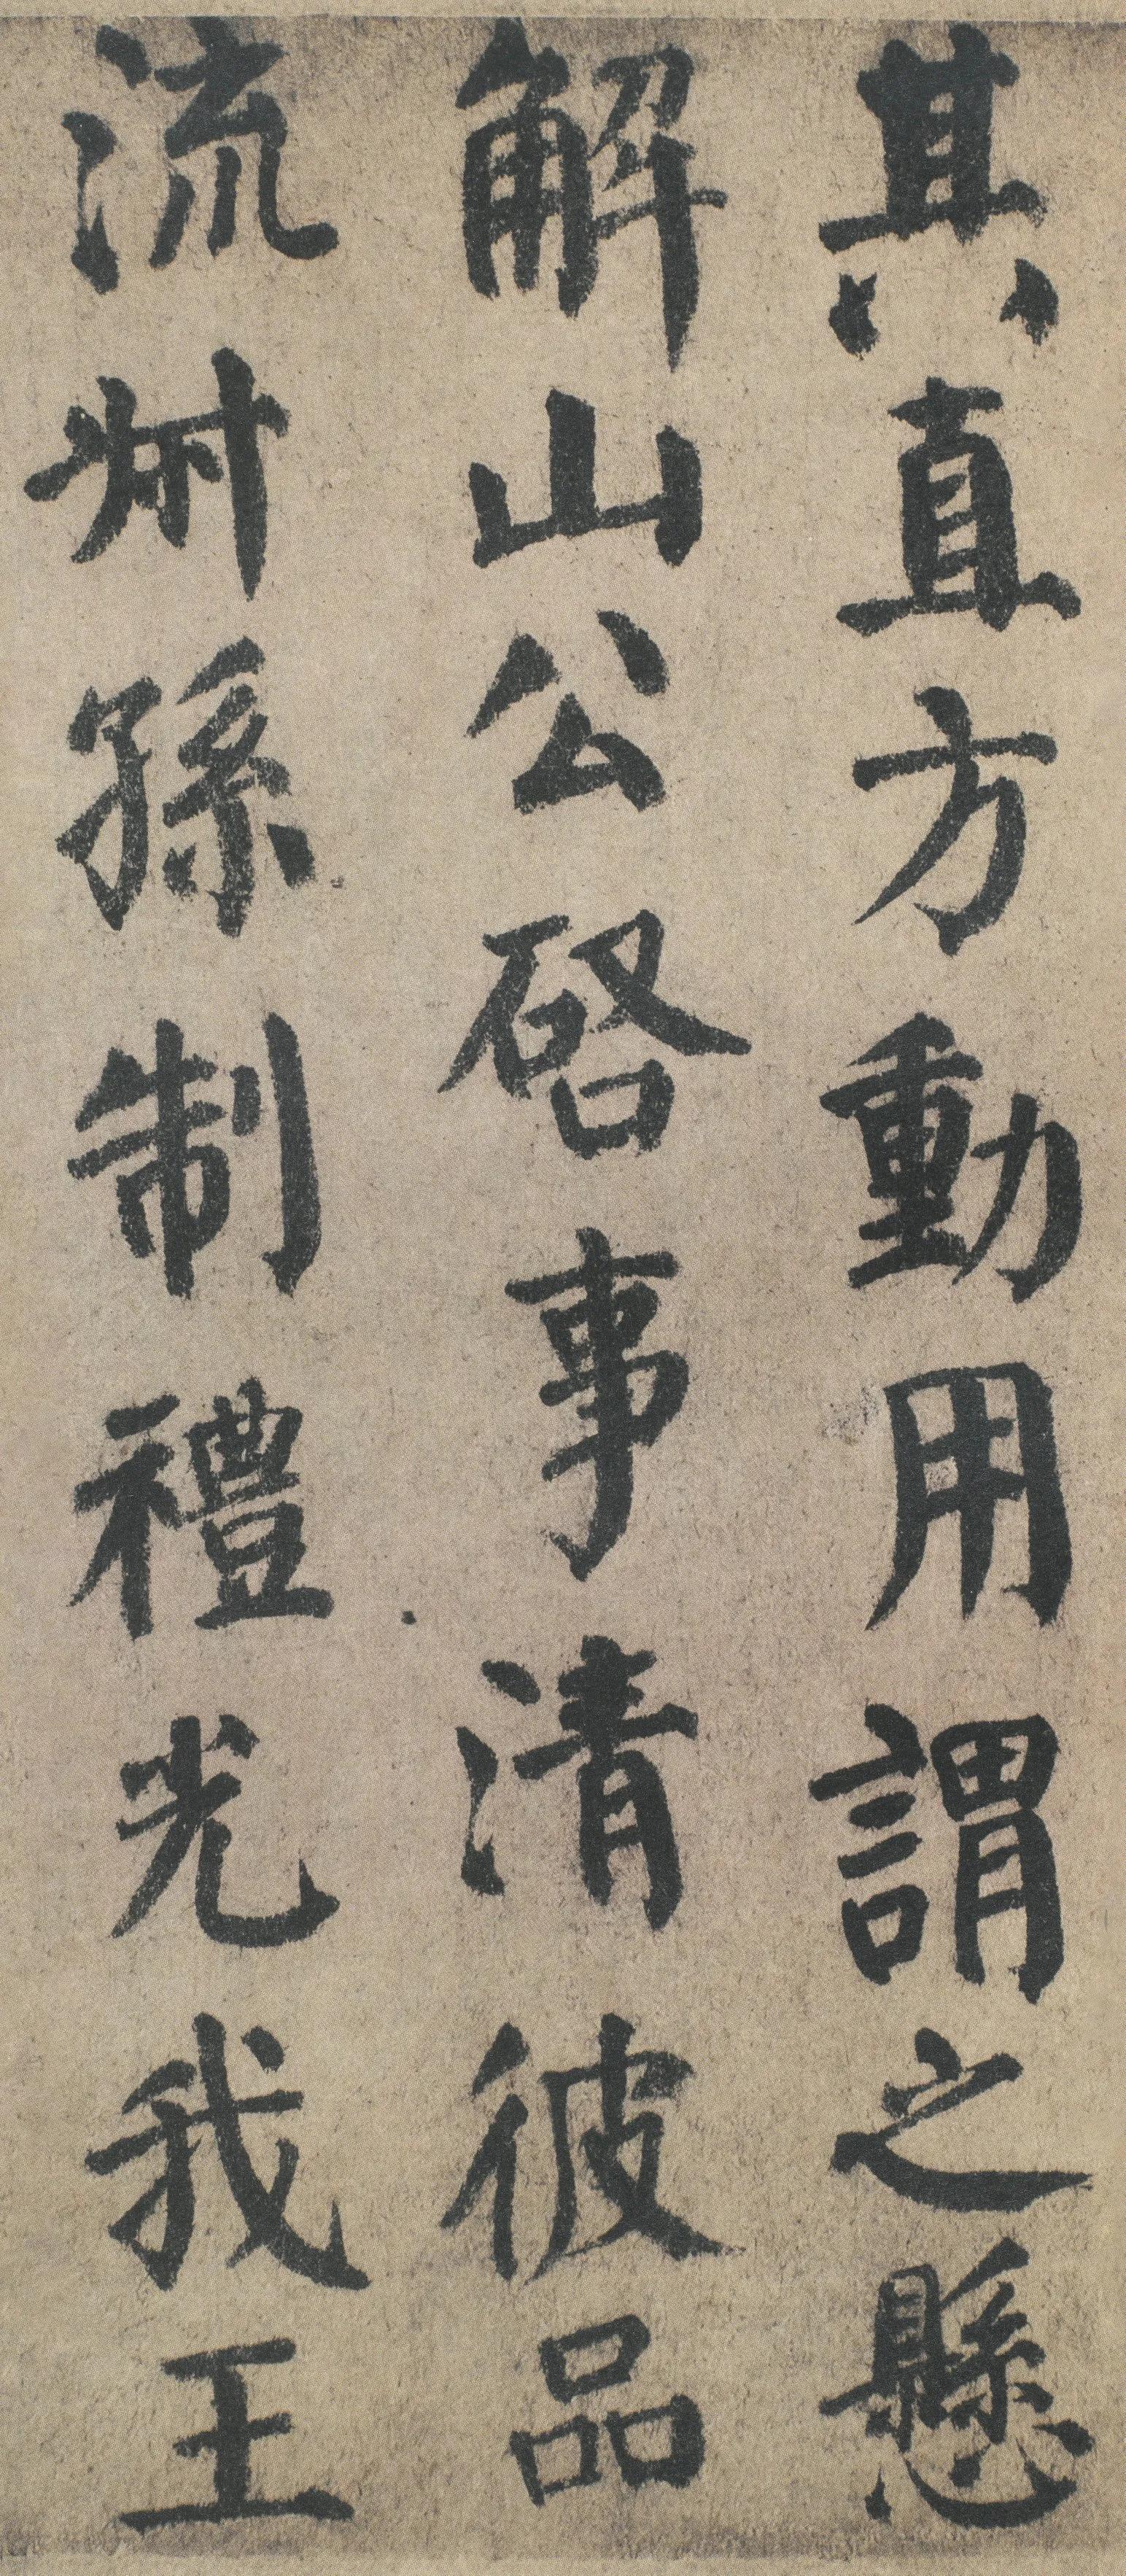 其直方動用謂之懸
解山公啓事清彼品
流叔孫制禮光我王